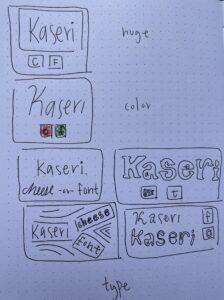 Kaseri
C F
huge
Kaseri
color
Kaseri
cheese -or- font
Kaseri
t
Kaseri
cheese
font
Kaseri f
Kaseri
type